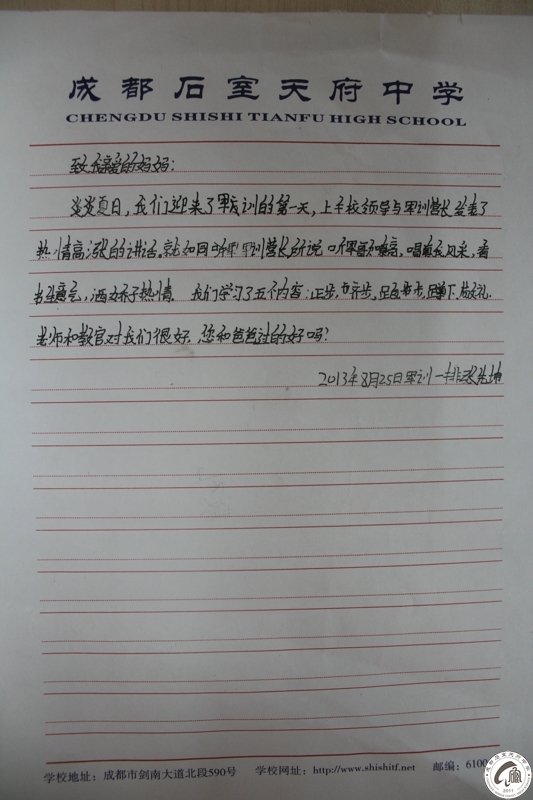 成都石室天府中学
CHENGDU SHISHI TIANFU HIGH SCHOOL
致亲爱的妈妈：
炎炎夏日，我们迎来了军训的第一天，上午校领导与军训营长发表了
热情高涨的讲话。就如同军训营长所说 嘹亮，唱 风采，看
书生意气，洒 热情。 我们学习了五个内容：正步，齐步， 步， 蹲下，敬礼。
老师和教官对我们很好，您和爸爸过的好吗？
2013年8月25日军训一排
学校地址：成都市剑南大道北段590号 学校网址：http://www.shishitf.net 邮编：6100
2011